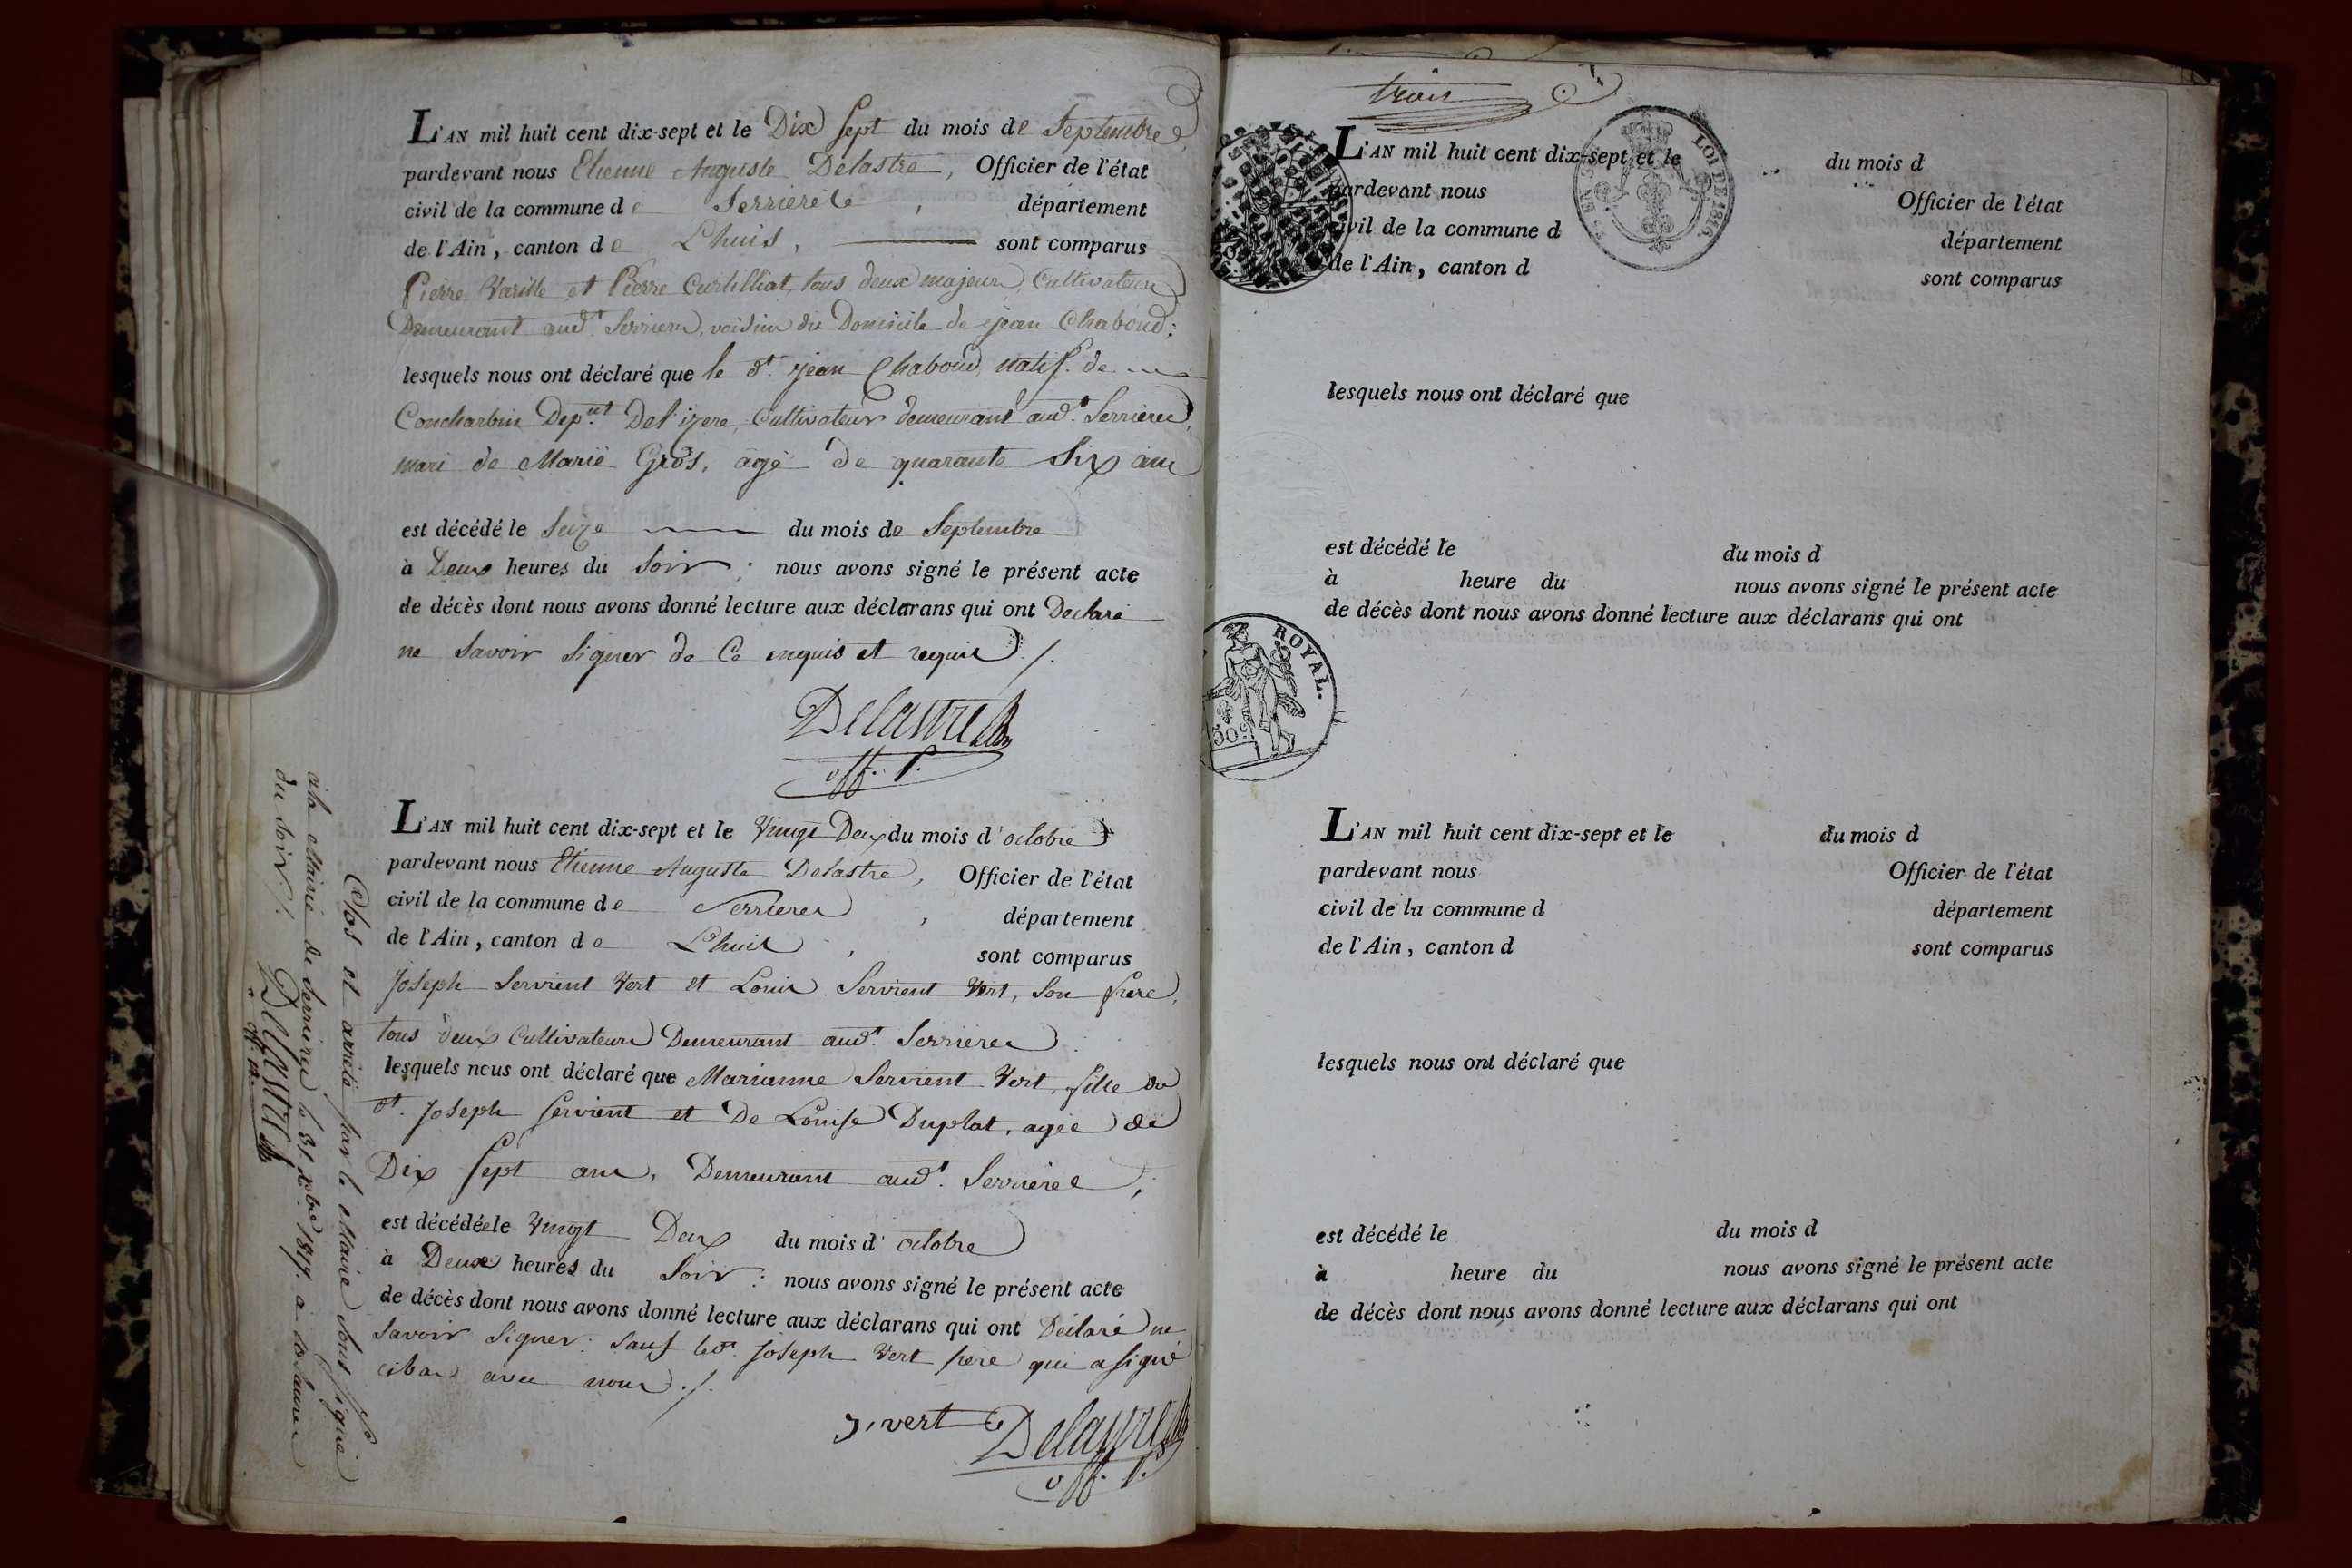 L'AN mil huit cent dix-sept et le Dix Sept du mois de Septembre
pardevant nous Etienne Auguste Delastre, Officier de l'état
civil de la commune de Serrieres, département
de l'Ain, canton de Lhuis, sont comparus
Pierre Varille et Pierre Curtilliat, tous deux majeurs, Cultivateurs
Demeurant aud.t Serrieres, voisins du Domicile de jean Chaboud;
lesquels nous ont déclaré que le d.t jean Chaboud, natif de
Concharbin Dep.nt Del'izere, Cultivateur demeurant aud.t Serrieres,
mari de Marie Gros, agé de quarante Six ans
est décédé le Seize du mois de Septembre
à Deux heures du Soir; nous avons signé le présent acte
de décès dont nous avons donné lecture aux déclarans qui ont Declaré
ne Savoir Signer de Ce enquis et requis ./.
Delastre
off. p.
L'AN mil huit cent dix-sept et le Vingt Deux du mois d'octobre
pardevant nous Etienne Auguste Delastre, Officier de l'état
civil de la commune de Serrieres, département
de l'Ain, canton de Lhuis, sont comparus
Joseph Servient Vert et Louis Servient Vert, Son frere,
tous deux Cultivateurs Demeurant aud.t Serrieres
lesquels nous ont déclaré que Marianne Servient Vert, fille du
d.t Joseph Servient et De Louise Duplat, agée de
Dix Sept ans, Demeurant aud.t Serrieres,
est décédée le Vingt Deux du mois d'octobre
à Deux heures du Soir: nous avons signé le présent acte
de décès dont nous avons donné lecture aux déclarans qui ont Déclaré ne
Savoir Signer: Sauf led.t Joseph Vert pere qui a signé
cibas avec nous ./.
J. vert Delastre
off. p.
Clos et arreté par le Maire Sous Signé
à la Mairie de Serrieres le 31 Xbre 1817. à 10 heures
du Soir ./.
Delastre
trois
L'AN mil huit cent dix-sept et le du mois d
pardevant nous Officier de l'état
civil de la commune d département
de l'Ain, canton d sont comparus
LOI DE 1816.
lesquels nous ont déclaré que
est décédé le du mois d
à heure du nous avons signé le présent acte
de décès dont nous avons donné lecture aux déclarans qui ont
ROYAL.
50
L'AN mil huit cent dix-sept et le du mois d
pardevant nous Officier de l'état
civil de la commune d département
de l'Ain, canton d sont comparus
lesquels nous ont déclaré que
est décédé le du mois d
à heure du nous avons signé le présent acte
de décès dont nous avons donné lecture aux déclarans qui ont